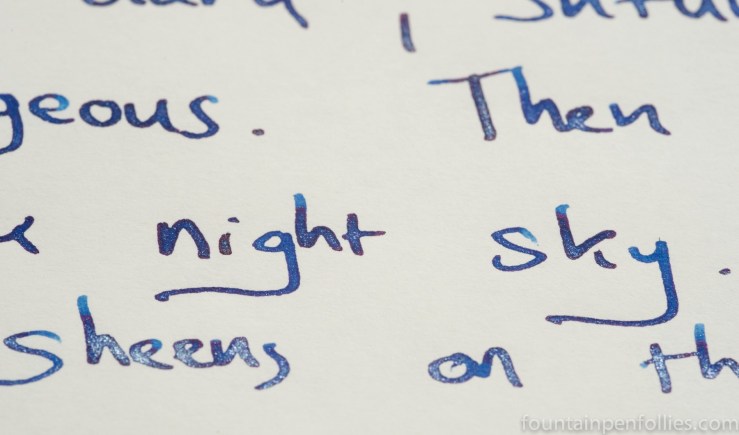 geous. Then
night sky.
sheens on th
fountainpenfollies.com